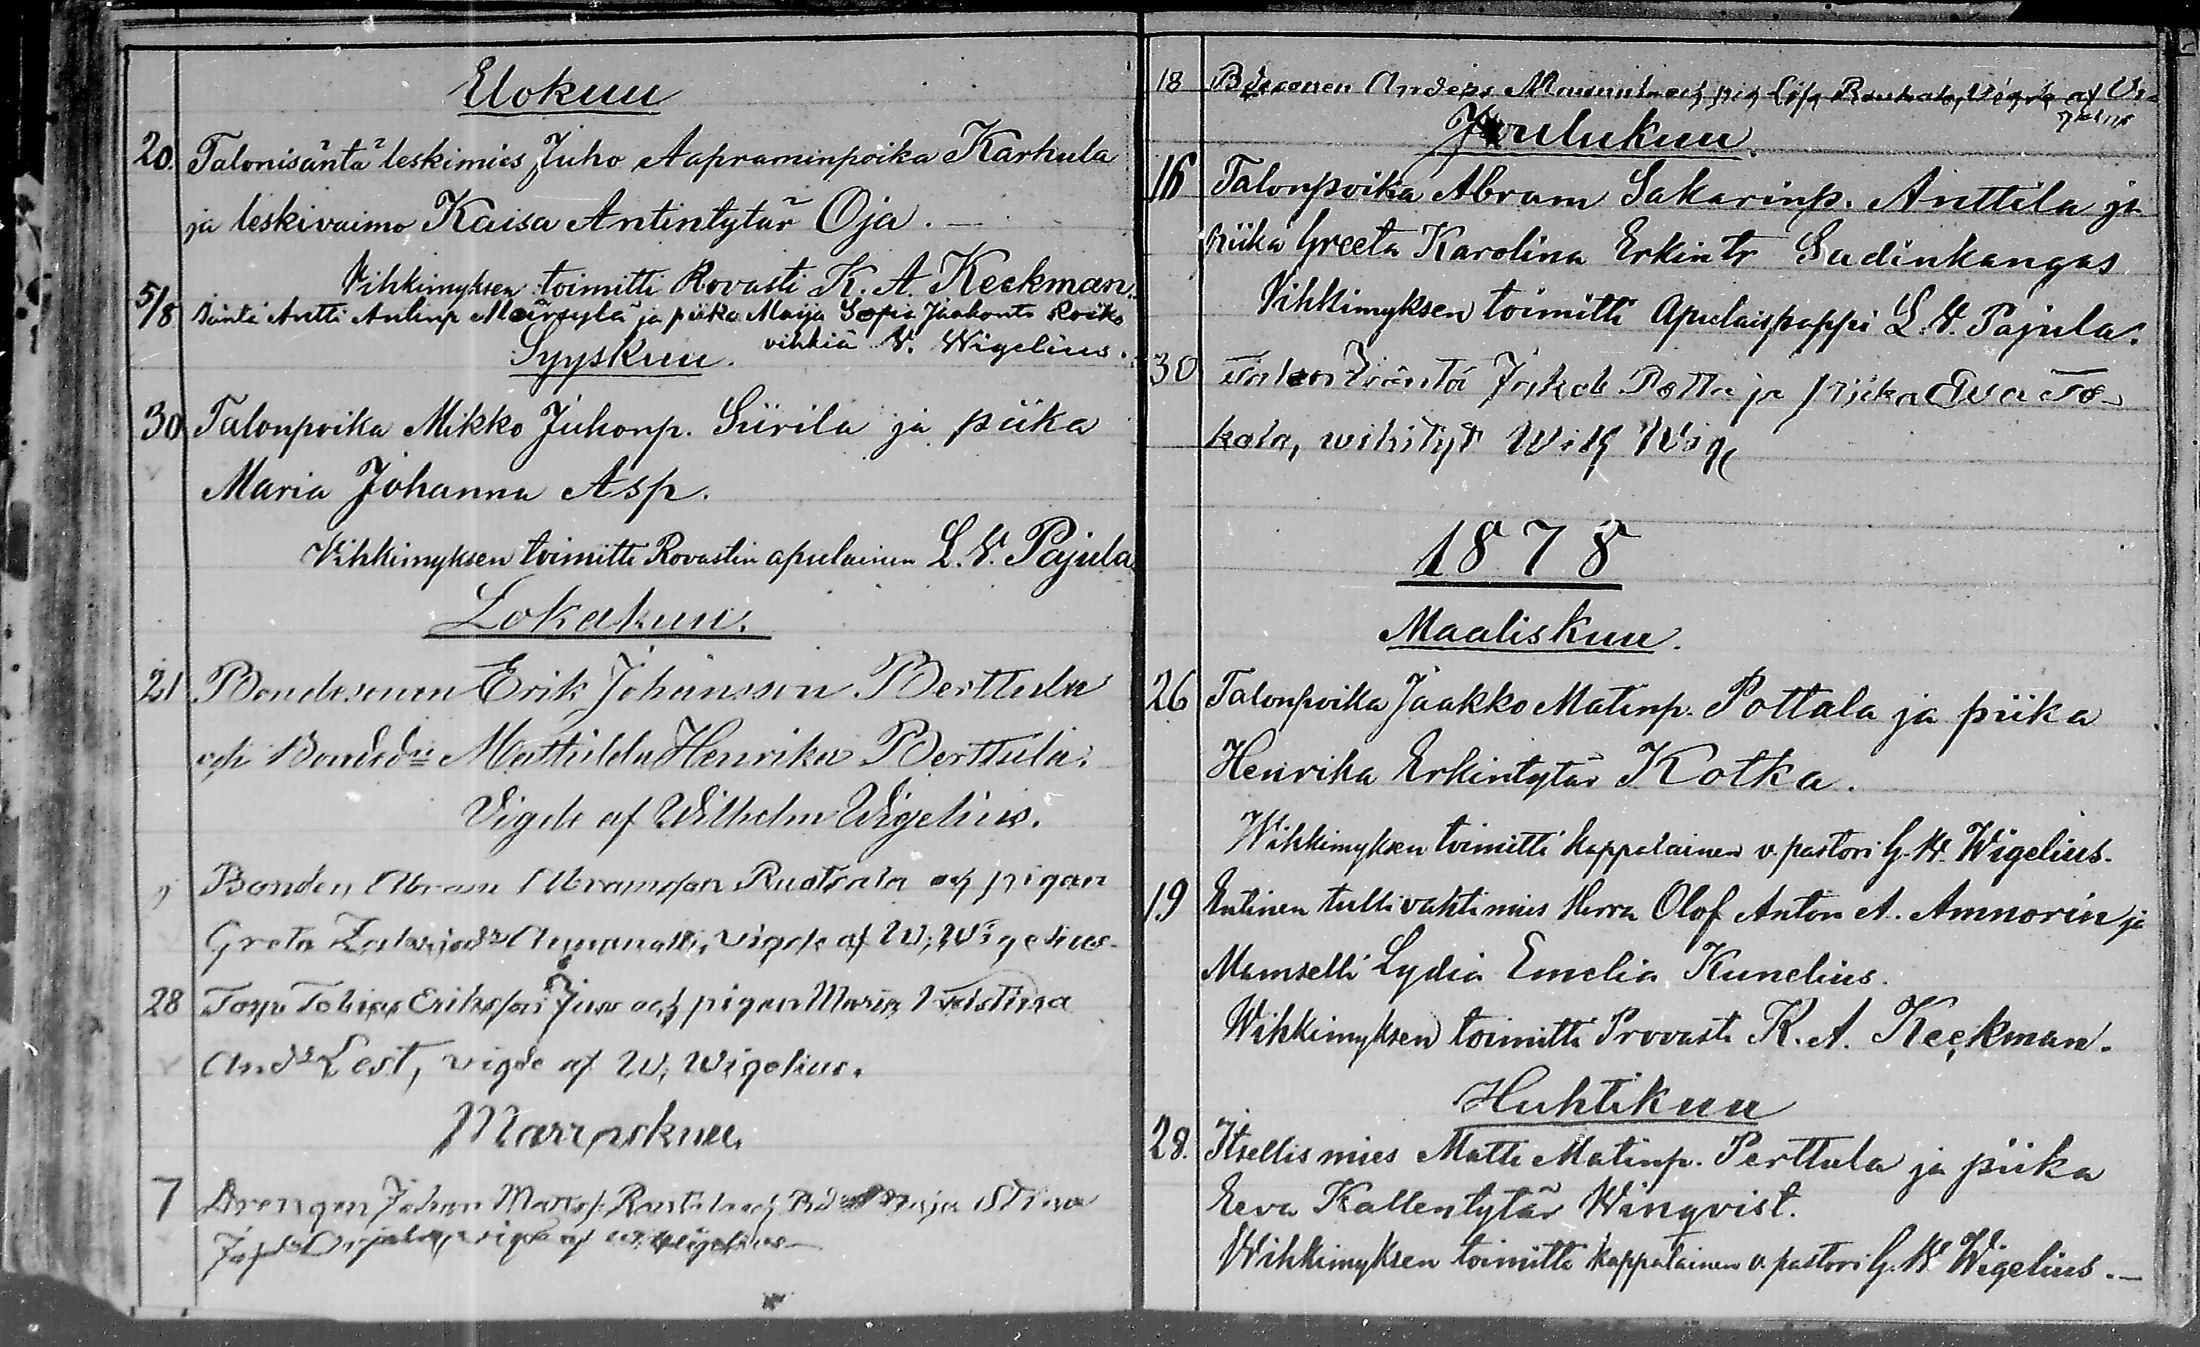 Elokuu
20. Talonisäntä leskimies Juho Aapraminpoika Karhula
ja leskivaimo Kaisa Antintytär Oja. —
Vihkimyksen toimitti Rovasti K. A. Keckman.
5/8 Isäntä Antti Antinp Märsylä ja piika Maija Sofia Jaakonts Roiko
vihkiä V. Wigelius.
Syyskuu.
30 Talonpoika Mikko Juhonp. Siirila ja piika
Maria Johanna Asp.
Vihkimyksen toimitti Rovastin apulainen L. V. Pajula
Lokakuu.
21 Bondesonen Erik Johansson Berttula
och Bondedr Mathilda Henrika Berttula.
Vigde af Wilhelm Wigelius.
Bonden Abram Abramsson och pigan
Greta vigde af W. Wigelius
28 Torp Tobias Eriksson Juso och pigan Maria Kristina
Andr Lest, vigde af W. Wigelius.
Marraskuu.
7 Drengen Johan Matts. och Stina
vigde af W. Wigelius
18 Bdesonen Anders och pig vigde af
Joulukuu.
16 Talonpoika Abram Sakarinp. Anttila ja
piika Greeta Karolina Erkintr Sudinkangas
Vihkimyksen toimitti Apulaispappi L. V. Pajula.
30 Talon Isäntä Jakob Potta ja piika Eva To-
kola, wihityt Wilh Wig
1878
Maaliskuu.
26 Talonpoika Jaakko Matinp. Pottala ja piika
Henrika Erkintytär Kotka.
Wihkimyksen toimitti kappalainen v. pastori G. W. Wigelius.
19 Entinen tullivahtimies Herra Olof Anton A. Ammorin ja
Mamselli Lydia Emelia Kunelius.
Wihkimyksen toimitti Provasti K. A. Keckman.
Huhtikuu
28. Itsellismies Matti Matinp. Perttula ja piika
Eeva Kallentytär Winqvist.
Wihkimyksen toimitti kappalainen v. pastori G. W Wigelius. —